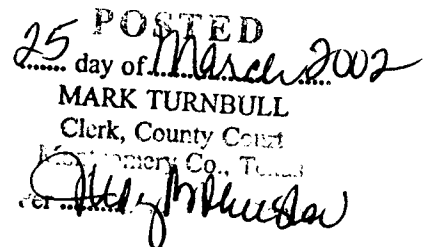 POSTED
25 day of March 2002
MARK TURNBULL
Clerk, County Court
Montgomery Co., Texas
Per